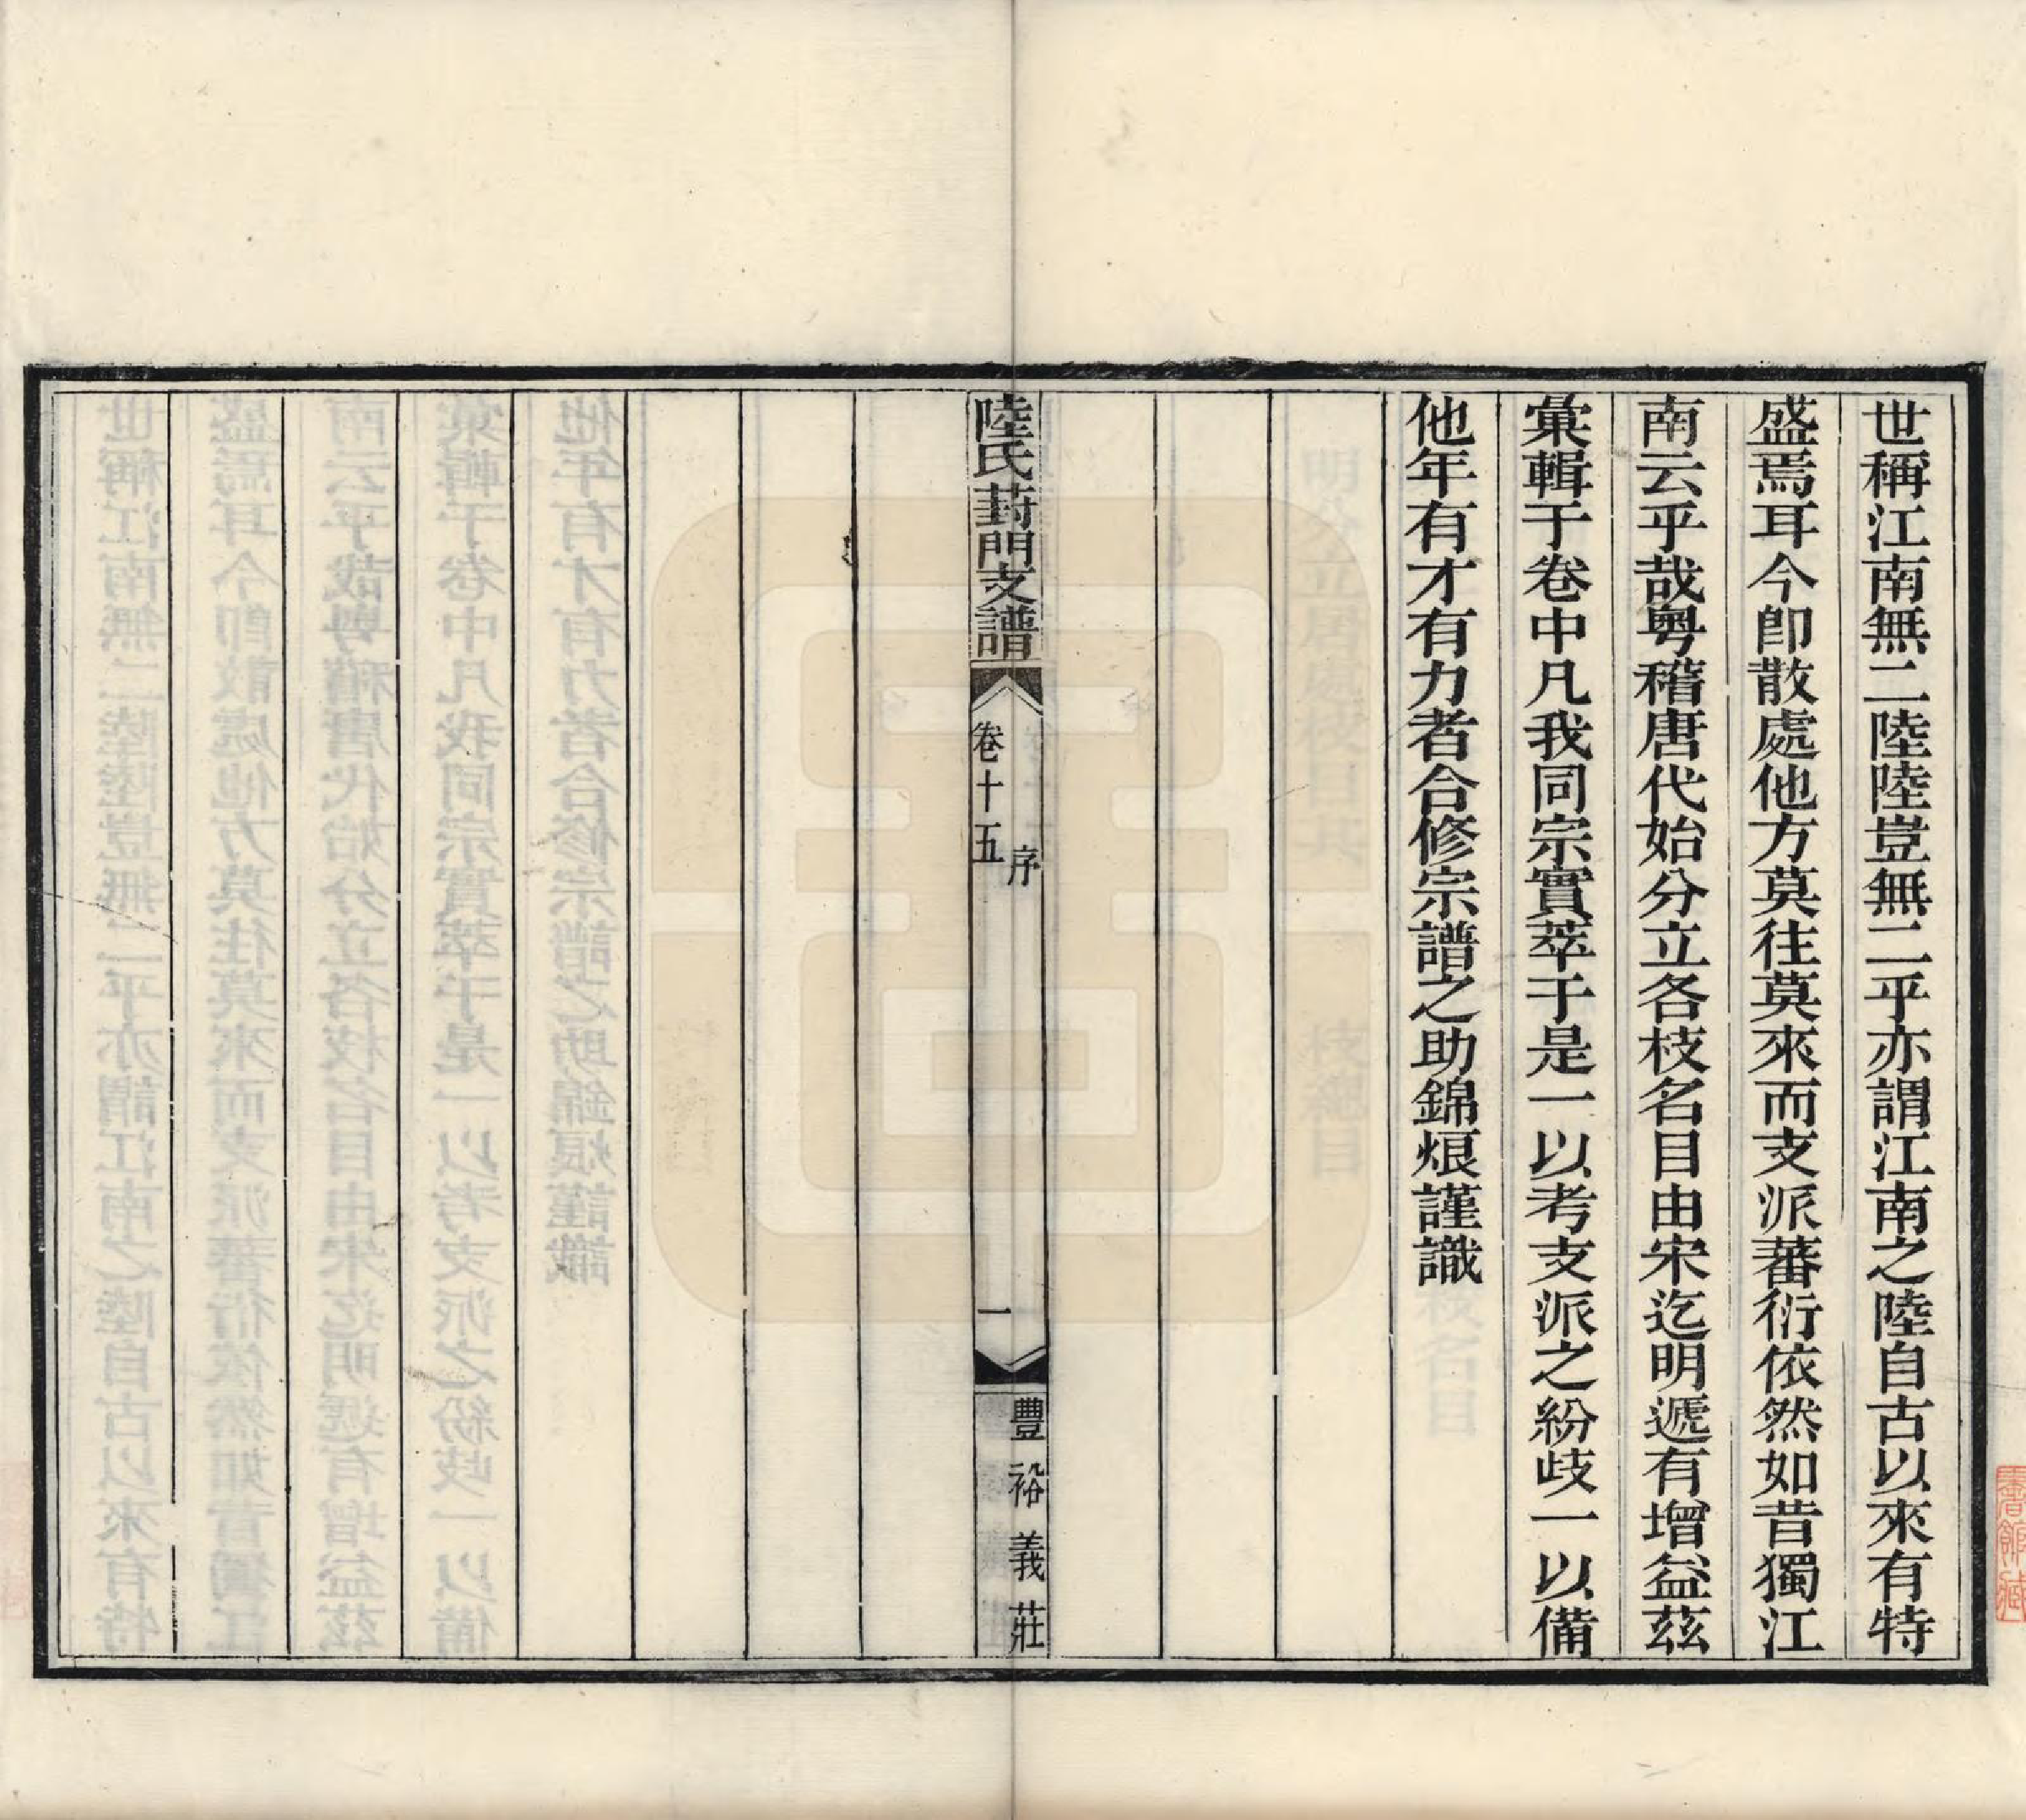 世稱江南無二陸陸豈無二乎亦謂江南之陸自古以來有特
盛焉耳今卽散處他方莫往莫來而支派蕃衍依然如昔獨江
南云乎哉粵稽唐代始分立各枝名目由宋迄明遞有增益茲
彙輯于卷中凡我同宗實萃于是一以考支派之紛歧一以備
他年有才有力者合修宗譜之助錦烺謹識
陸氏葑門支譜
卷十五
序
一
豐裕義莊
書館藏